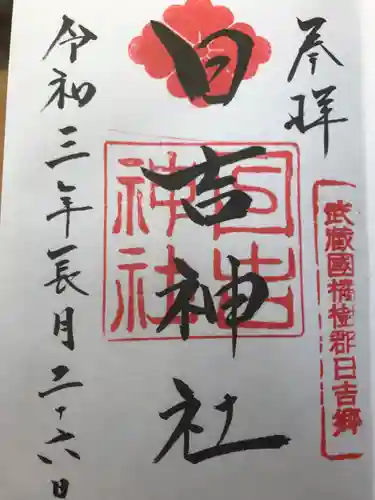 奉拝
武蔵國橘樹郡日吉郷
日吉神社
日吉神社
令和三年長月二十六日